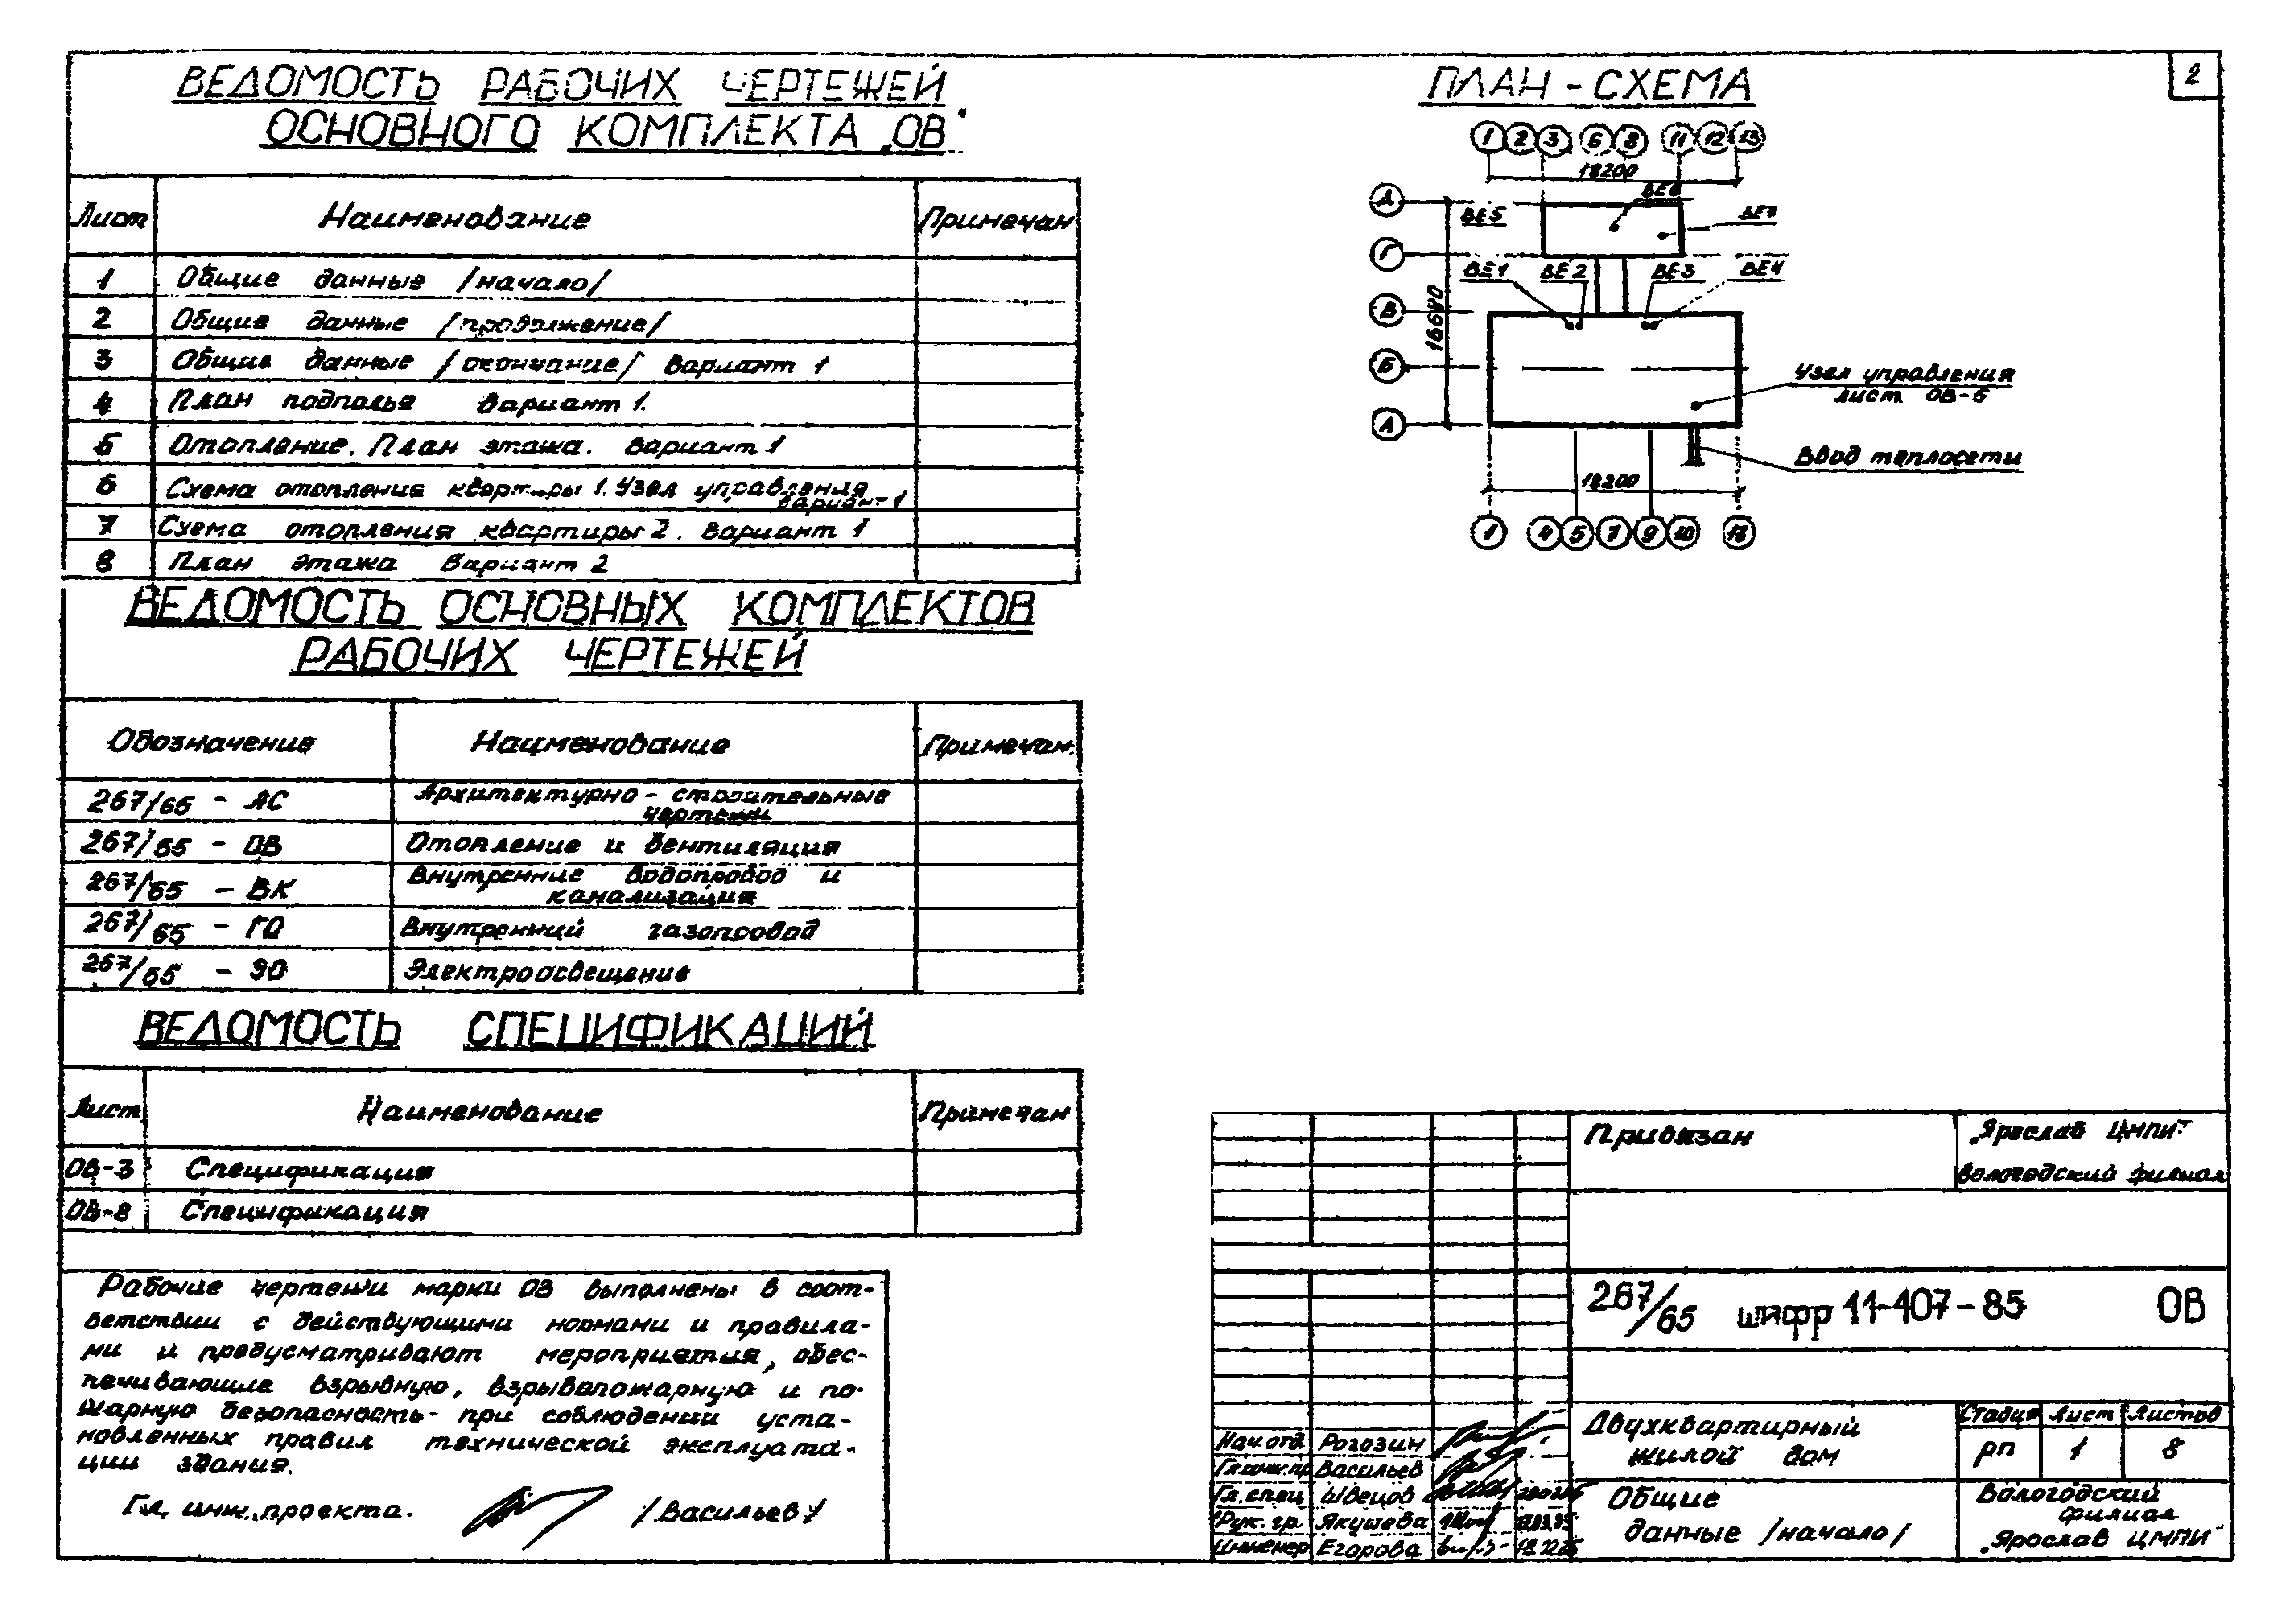 2
ВЕДОМОСТЬ РАБОЧИХ ЧЕРТЕЖЕЙ
ОСНОВНОГО КОМПЛЕКТА „ОВ"
Лист Наименование Примечан
1 Общие данные /начало/
2 Общие данные /продолжение/
3 Общие данные /окончание/ Вариант 1
4 План подполья Вариант 1.
5 Отопление. План этажа. Вариант 1
6 Схема отопления квартиры 1. Узел управления
Вариант 1
7 Схема отопления квартиры 2. Вариант 1
8 План этажа Вариант 2
ВЕДОМОСТЬ ОСНОВНЫХ КОМПЛЕКТОВ
РАБОЧИХ ЧЕРТЕЖЕЙ
Обозначение Наименование Примечан.
267/65 - АС Архитектурно - строительные
чертежи
267/65 - ОВ Отопление и вентиляция
267/65 - ВК Внутренние водопровод и
канализация
267/65 - ГО Внутренний газопровод
267/65 - ЭО Электроосвещение
ВЕДОМОСТЬ СПЕЦИФИКАЦИЙ
Лист Наименование Примечан
ОВ-3 Спецификация
ОВ-8 Спецификация
Рабочие чертежи марки ОВ выполнены в соот-
ветствии с действующими нормами и правила-
ми и предусматривают мероприятия, обес-
печивающие взрывную, взрывопожарную и по-
жарную безопасность при соблюдении уста-
новленных правил технической эксплуата-
ции здания.
Гл. инж. проекта. /Васильев/
ПЛАН - СХЕМА
1 2 3 6 8 11 12 13
18200
ВЕ6
Д ВЕ5 ВЕ7
Г
ВЕ1 ВЕ2 ВЕ3 ВЕ4
В
Б
А
Узел управления
лист ОВ-6
Ввод теплосети
18200
1 4 5 7 9 10 13
Привязан „Ярослав ЦМПИ"
Вологодский филиал
267/65 шифр 11-407-85 ОВ
Двухквартирный
жилой дом
Стадия Лист Листов
рп 1 8
Нач. отд Рогозин
Гл.инж.пр Васильев
Гл. спец Швецов
Рук. гр. Якушева
Инженер Егорова
Общие
данные /начало/
Вологодский
филиал
„Ярослав ЦМПИ"